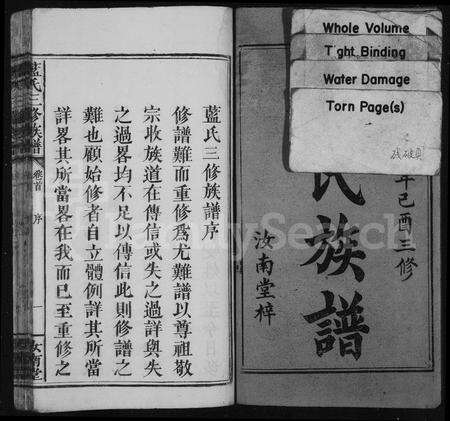 Whole Volume
Tight Binding
Water Damage
Torn Page(s)
残破頁
年己酉三修
氏族譜
汝南堂梓
藍氏三修族譜序
修譜難而重修為尤難譜以尊祖敬
宗收族道在傳信或失之過詳與失
之過畧均不足以傳信此則修譜之
難也顧始修者自立體例詳其所當
詳畧其所當畧在我而已至重修之
藍氏三修族譜
卷首
序
一
汝南堂
FamilySearch